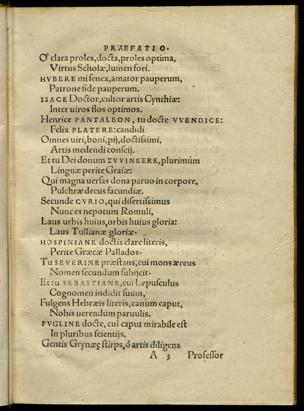 PRÆFATIO.
O' clara proles, docta, proles optima,
Virtus Scholæ, lumen fori.
HVBERE mi senex, amator pauperum,
Patrone fide pauperum.
ISACE Doctor, cultor artis Cynthiæ:
Inter uiros flos optimos.
Henrice PANTALEON, tu docte VVENDICE:
Felix PLATERE: candidi
Omnes uiri, boni, pij, doctissimi,
Artis medendi conscij.
Et tu Dei donum ZVVINKERE, plurimùm
Linguæ perite Graiæ:
Qui magna uersas dona paruo in corpore,
Pulchræ decus facundiæ.
Secunde CVRIO, qui disertissimus
Nunc es nepotum Romuli,
Laus urbis huius, orbis huius gloria:
Laus Tullianæ gloriæ.
HOSPINIANE doctis clare literis,
Perite Græcæ Pallados.
Tu SEVERINE præstans, cui mons æreus
Nomen secundum subijcit.
Et tu SEBASTIANE, cui Lepusculus
Cognomen indidit suum,
Fulgens Hebræis literis, canum caput,
Nobis uerendum paruulis.
FVGLINE docte, cui caput mirabile est
In pluribus scientijs.
Gentis Grynææ stirps, ô artis diligens
A 3 Professor